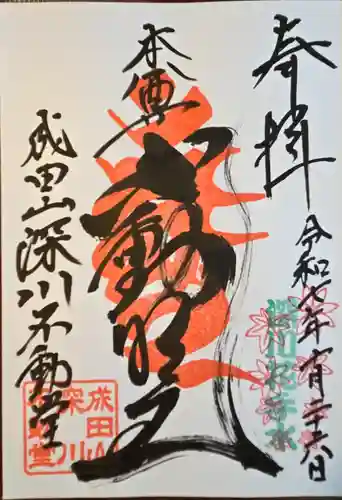 奉拝
令和七年十一月二十六日
本尊
不動明王
成田山深川不動堂
成田山
深川
不動堂